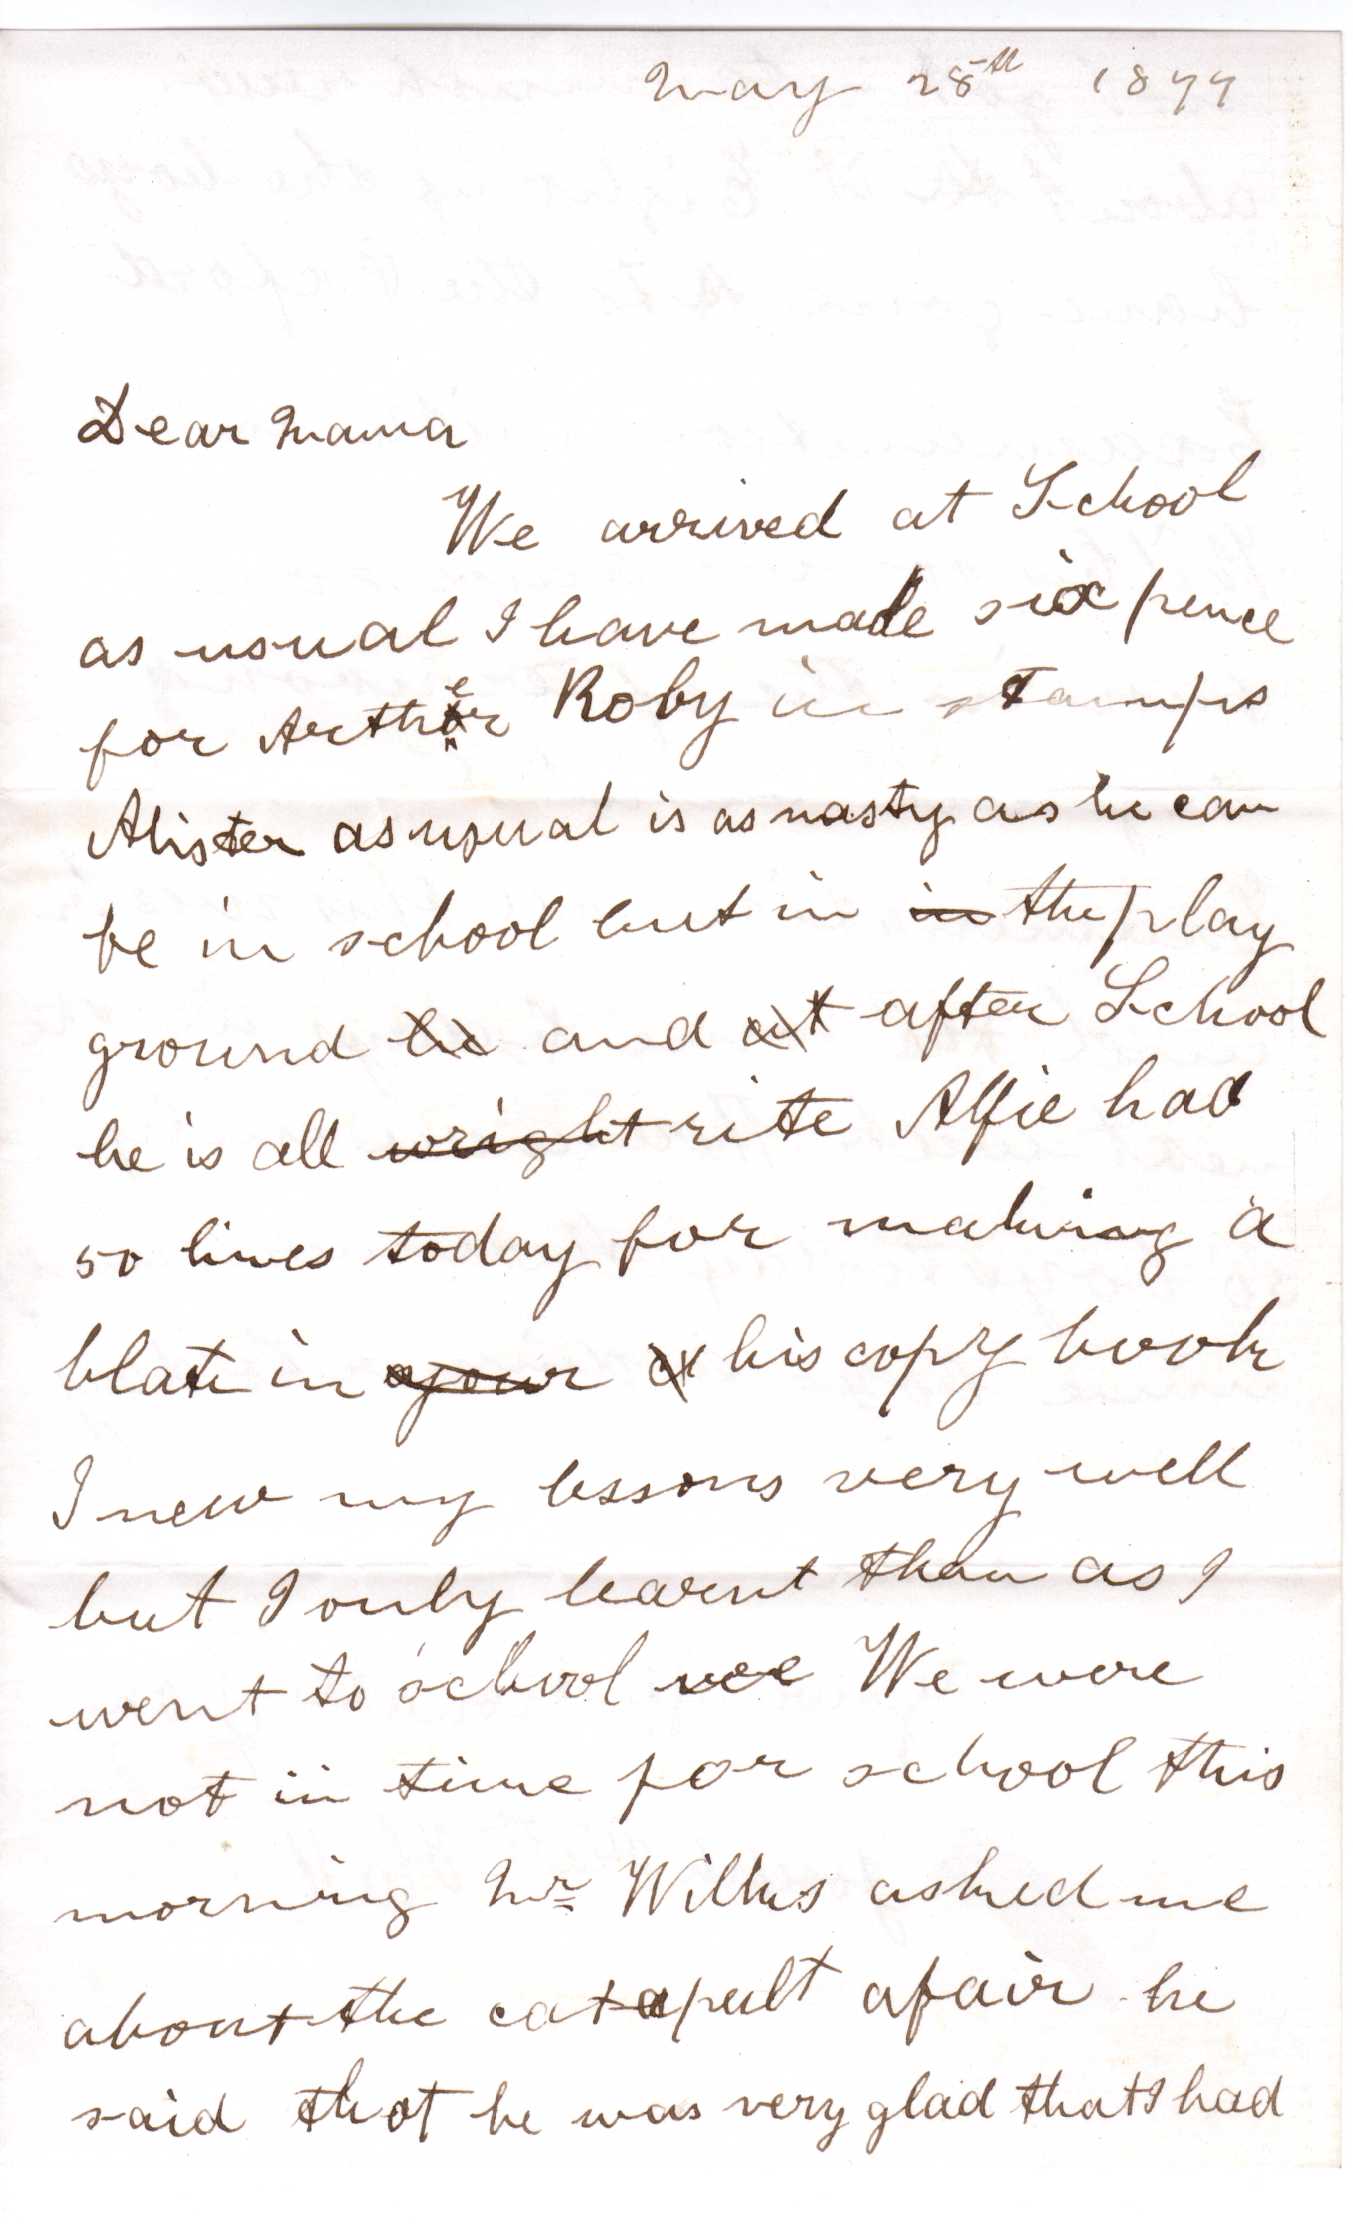 May 28th 1877
Dear Mama
We arrived at School
as usual I have made six pence
for Arther Roby in stamps
Alister as usual is as nasty as he can
be in school but in in the play
ground he and at after School
he is all wright rite Alfie had
50 lines today for making a
blate in your his copy book
I new my lessons very well
but I only learnt than as I
went to school wee We were
not in time for school this
morning Mr Wilkes asked me
about the catapult afair he
said that he was very glad that I had